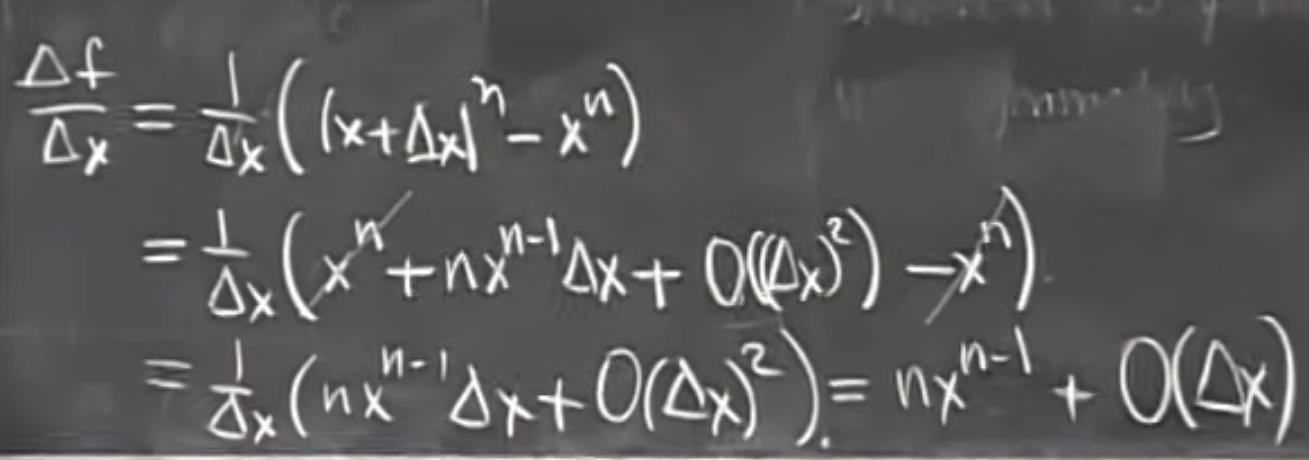 Δf/Δx = 1/Δx ((x+Δx)ⁿ − xⁿ)
= 1/Δx (xⁿ + nxⁿ⁻¹Δx + O((Δx)²) − xⁿ)
= 1/Δx (nxⁿ⁻¹Δx + O(Δx)²). = nxⁿ⁻¹ + O(Δx)